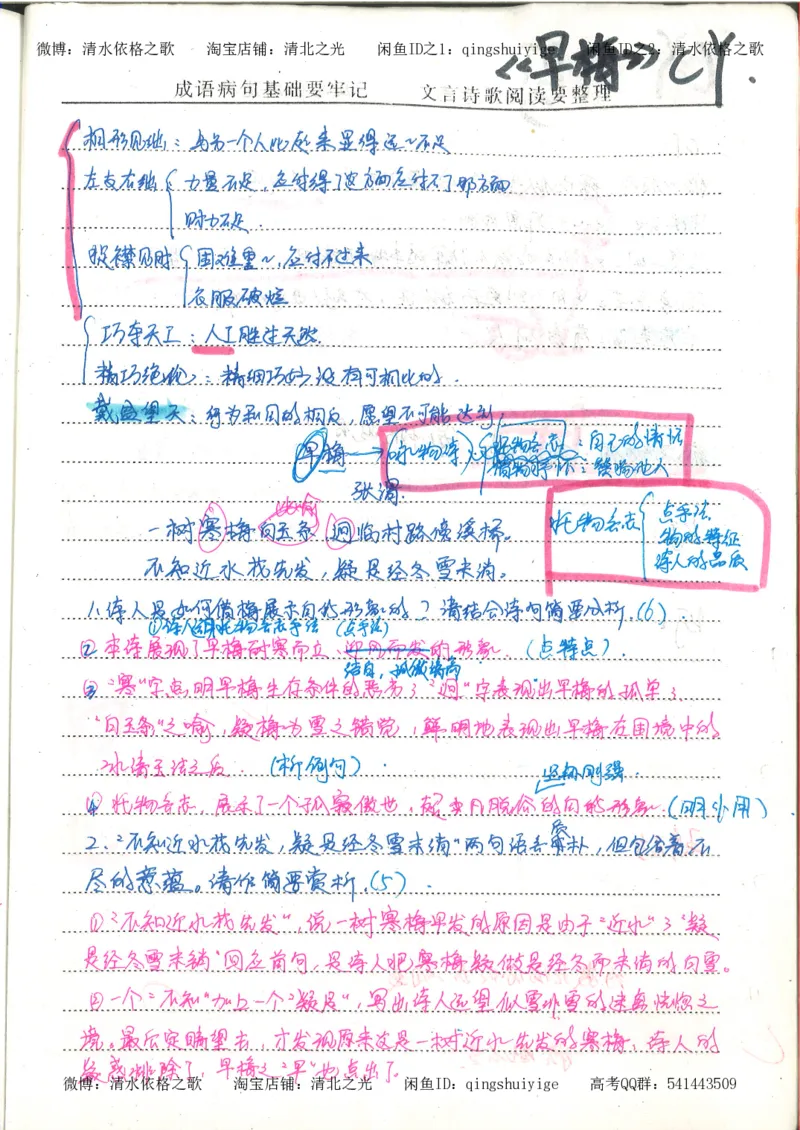 微博：清水依格之歌 淘宝店铺：清北之光 闲鱼ID之1：qingshuiyige 闲鱼ID之2：清水依格之歌
《早梅》CY.
成语病句基础要牢记 文言诗歌阅读要整理
相形见绌：与另一个人比起来显得远~不足
左支右绌 力量不足，应付得了这方面应付不了那方面
财力不足.
捉襟见肘 困难重~，应付不过来
衣服破烂
巧夺天工：人工胜过天然.
精巧绝伦：精细巧妙没有可相比的.
戴盆望天：行为和目的相反，愿望不可能达到.
早梅→(咏物诗) 托物言志：自己的情怀
借物抒怀：赞物他人
张谓.
比喻
一树寒梅白玉条 迥临村路傍溪桥。
不知近水花先发，疑是经冬雪未消。
托物言志 点手法
物的特征
诗人的品质
1、诗人是如何借梅展示自我形象的？请结合诗句简要分析。(6)
①诗人运用托物言志手法 (点手法)
②本诗展现了早梅耐寒而立、迎风而发的形象. (点特点).
洁白，孤傲清高
③"寒"字点明早梅生存条件的恶劣；"迥"字表现出早梅的孤单；
"白玉条"之喻，疑梅为雪之错觉，鲜明地表现出早梅在困境中的
冰清玉洁之后. (析例句).
坚韧刚强.
④托物言志，展示了一个孤寂傲世，超凡脱俗的自我形象. (明作用)
2、"不知近水花先发，疑是经冬雪未消"两句语言质朴，但包含着不
尽的意蕴。请作简要赏析.(5).
①"不知近水花先发"，说一树寒梅早发的原因是由于"近水"；"疑
是经冬雪未销"回应前句，是诗人把寒梅疑做是经冬而未消的白雪。
②一个"不知"加上一个"疑是"，写出诗人远望似雪非雪的迷离恍惚之
境。最后定睛望去，才发现原来这是一树近水先发的寒梅，诗人的
疑惑排除了，早梅之"早"也点出了.
微博：清水依格之歌 淘宝店铺：清北之光 闲鱼ID：qingshuiyige 高考QQ群：541443509